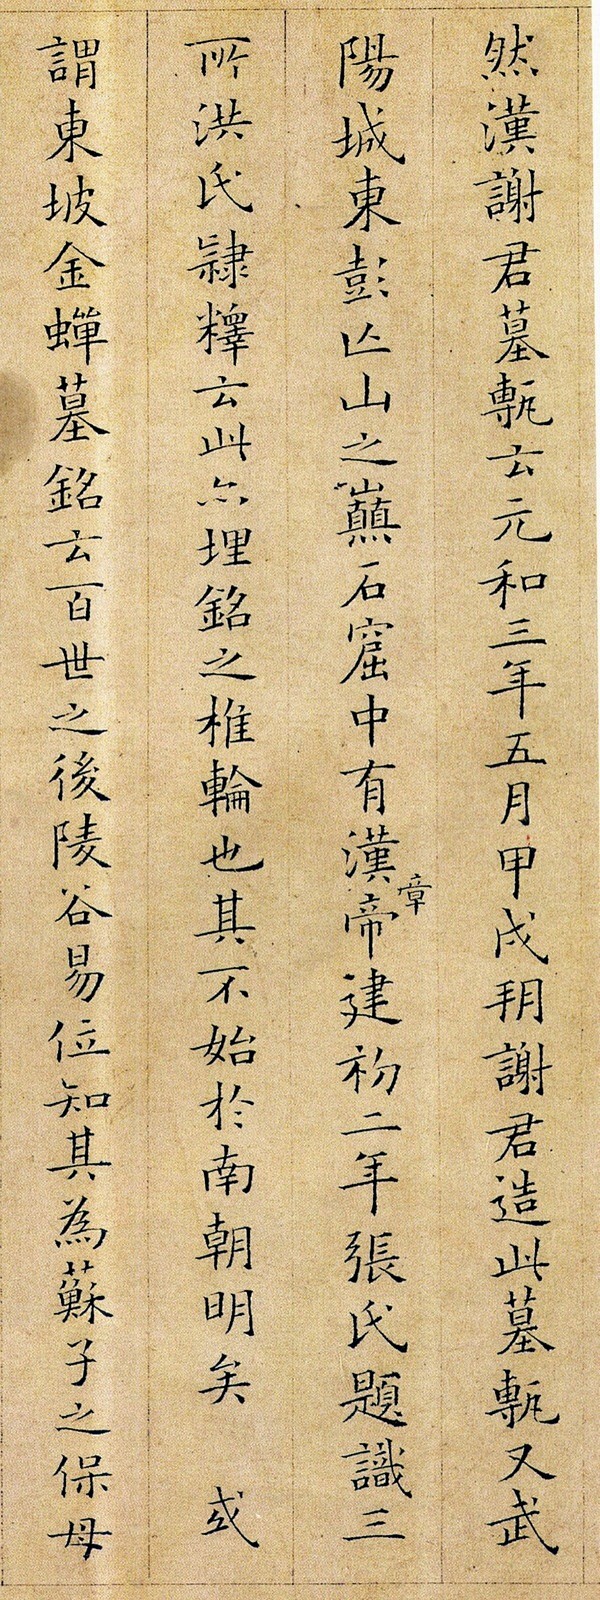 然漢謝君墓甎云元和三年五月甲戌朔謝君造此墓甎又武
陽城東彭亾山之巔石窟中有漢章帝建初二年張氏題識三
所洪氏隸釋云此亦埋銘之椎輪也其不始於南朝明矣 或
謂東坡金蟬墓銘云百世之後陵谷易位知其為蘇子之保母